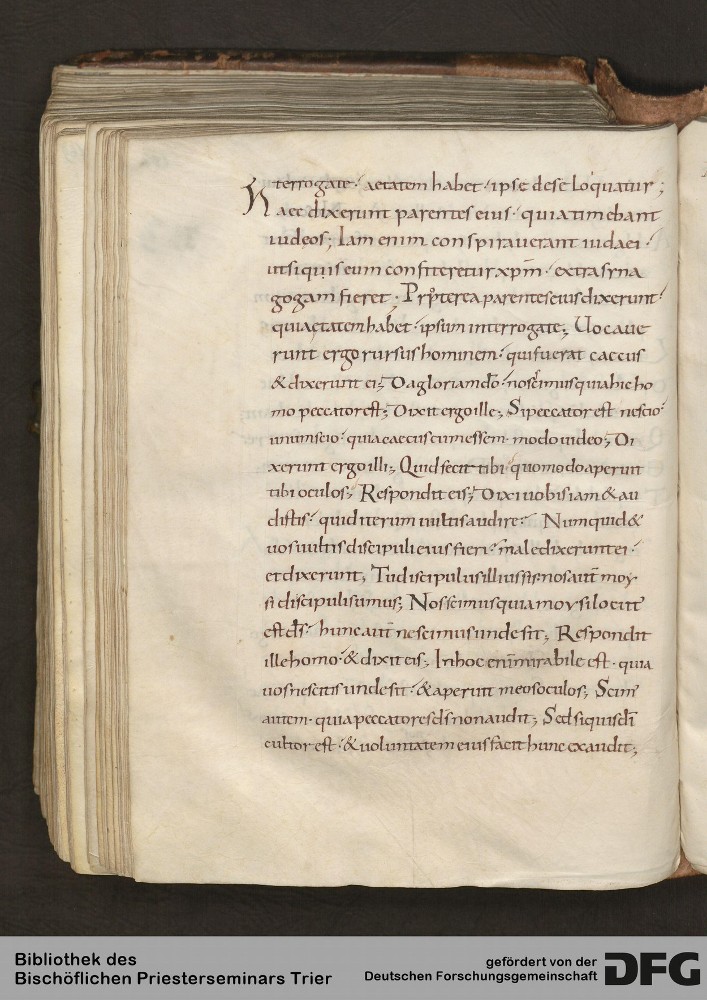 terrogate · aetatem habet · ipse de se loquatur ;
Haec dixerunt parentes eius · quia timebant
iudeos ; Iam enim conspirauerant iudaei ·
ut si quis eum confiteretur xp̄m · extra syna
gogam fieret · Propterea parentes eius dixerunt ·
quia aetatem habet · ipsum interrogate ; Uocaue
runt ergo rursus hominem · qui fuerat caecus
& dixerunt ei ; Da gloriam dō · nos scimus quia hic ho
mo peccator est ; Dixit ergo ille ; Si peccator est nescio ·
unum scio · quia caecus cum essem · modo uideo ; Di
xerunt ergo illi ; Quid fecit tibi · quomodo aperuit
tibi oculos ; Respondit eis ; Dixi uobis iam & au
distis · quid iterum uultis audire · Numquid &
uos uultis discipuli eius fieri · maledixerunt ei ·
et dixerunt ; Tu discipulus illius sis nos aut̄ moy
si discipuli sumus ; Nos scimus quia moysi locut'
est d̄s · hunc aut̄ nescimus unde sit ; Respondit
ille homo · & dixit eis ; In hoc enī mirabile est · quia
uos nescitis unde sit · & aperuit meos oculos ; Scim'
autem · quia peccatores d̄s non audit ; Sed si quis dī
cultor est · & uoluntatem eius facit hunc exaudit ;
Bibliothek des
Bischöflichen Priesterseminars Trier
gefördert von der
Deutschen Forschungsgemeinschaft
DFG